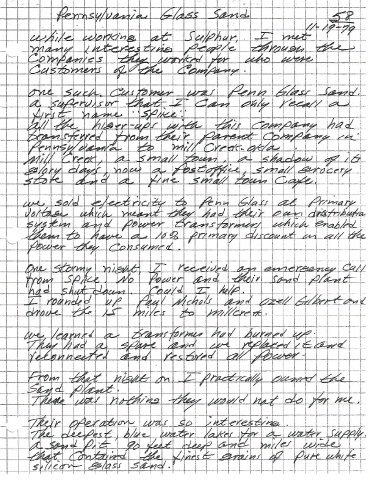 Pennsylvania Glass Sand
58
11-19-79
while working at Sulphur, I met
many interesting people through the
Companies they worked for who were
Customers of the Company.
One such Customer was Penn Glass Sand.
a supervisor that I can only recall a
first name "Splice".
all the higher-ups with this Company had
transferred from their Parent Company in
Pennsylvania to Mill Creek, Okla.
Mill Creek, a small town, a shadow of its
glory days now a Post office, small grocery
store and a fine small town Cafe.
we sold electricity to Penn Glass at Primary
Voltage which meant they had their own distribution
system and power transformers which enabled
them to have a primary discount on all the
power they consumed.
One stormy night I received an emergency Call
from Splice. No Power and their sand plant
had shut down. Could I help.
I rounded up Paul Nichols and Ozell Gilbert and
drove the 15 miles to millcreek.
we learned a transformer had burned up.
They had a spare and we replaced it and
reconnected and restored all power.
From that night on I practically owned the
Sand Plant.
There was nothing they would not do for me.
Their operation was so interesting.
The deepest blue water lakes for a water supply.
a sand pit 90 feet deep and miles wide
that contained the finest grains of pure white
silicon glass sand.